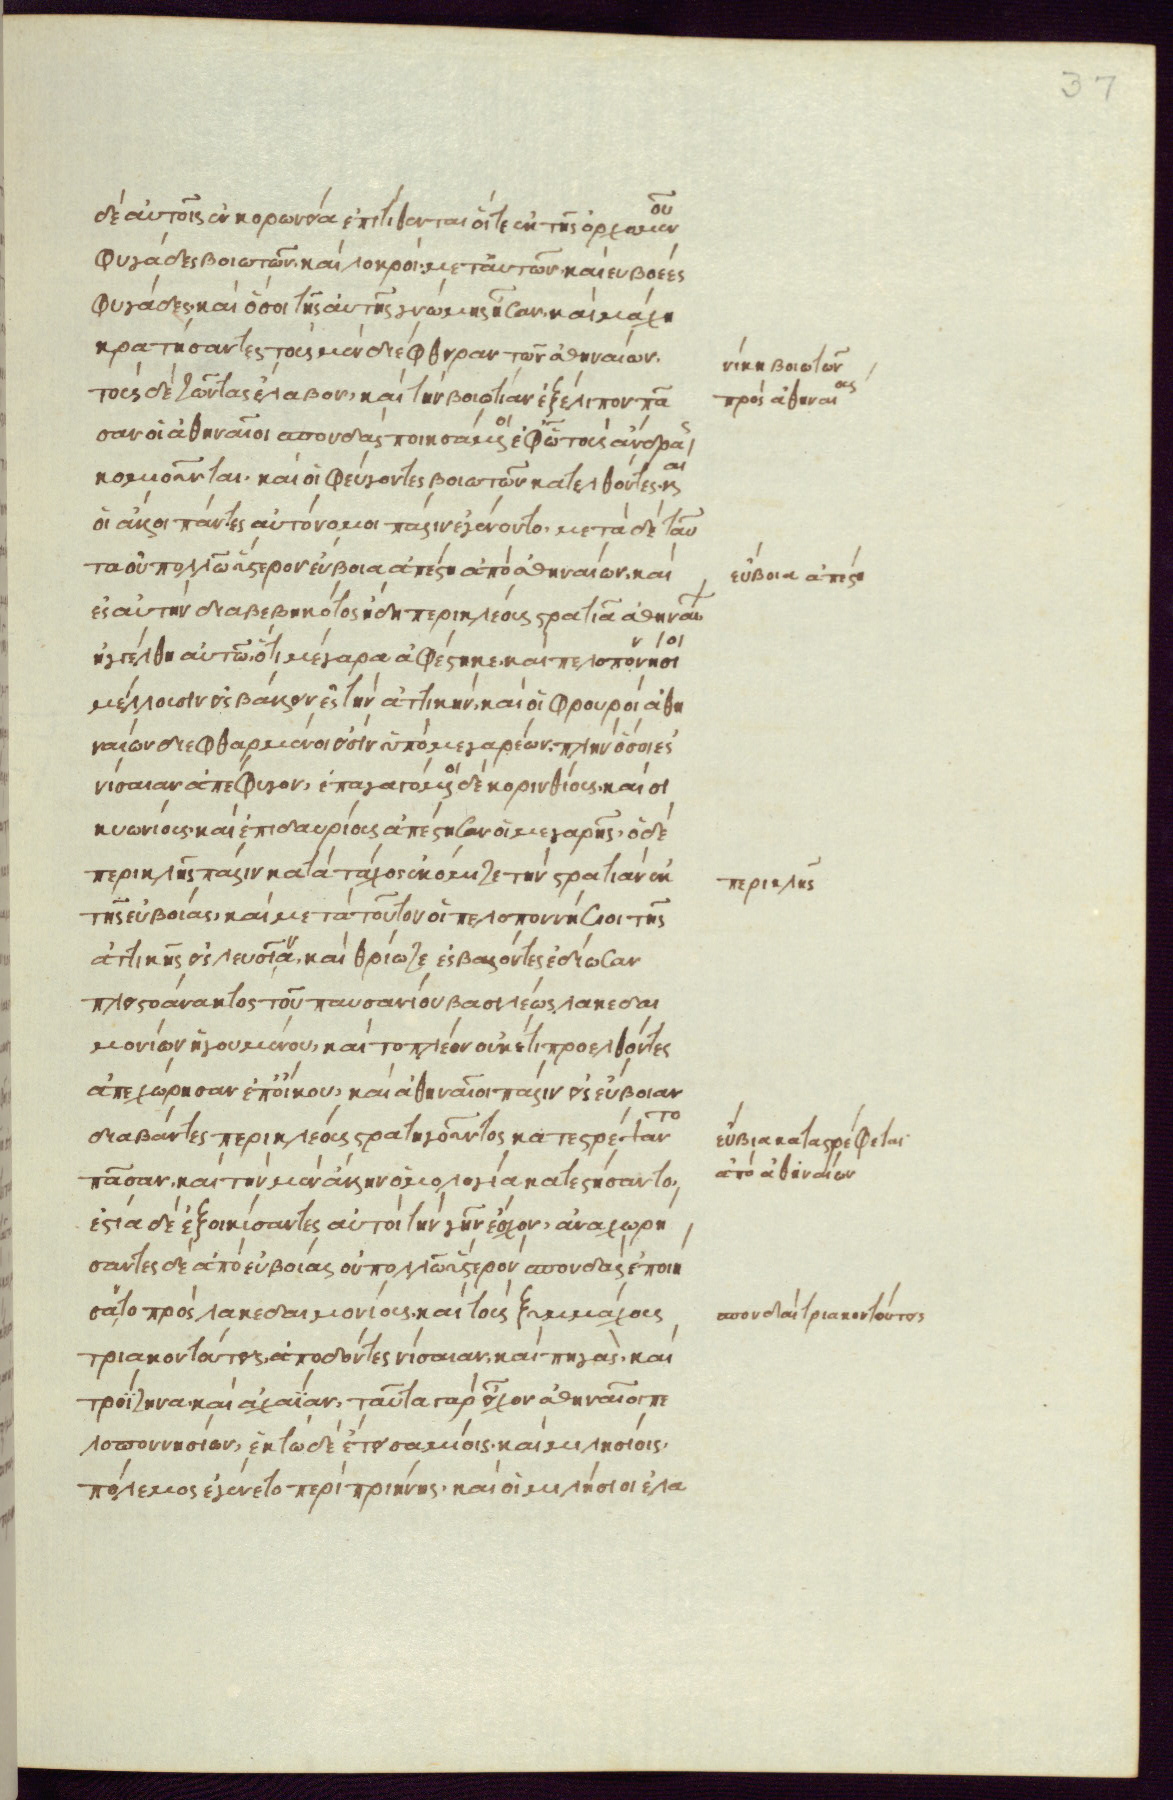 37
δ' αὐτοῖς ἐν κορωνεία ἐπιτίθενται οἵ τε ἐκ τῆς ὀρχομενοῦ
φυγάδες βοιωτῶν, καὶ λοκροὶ μετ' αὐτῶν, καὶ εὐβοέες
φυγάδες, καὶ ὅσοι τῆς αὐτῆς γνώμης ἦσαν, καὶ μάχη
κρατήσαντες τοὺς μὲν διέφθειραν τῶν ἀθηναίων,
νίκη βοιωτῶν
τοὺς δὲ ζῶντας ἔλαβον, καὶ τὴν βοιωτίαν ἐξέλιπον πᾶ
πρὸς ἀθηναίας
σαν οἱ ἀθηναῖοι σπονδὰς ποιησάμενοι ἐφ' ᾧ τοὺς ἄνδρας
κομιοῦνται. καὶ οἱ φεύγοντες βοιωτῶν κατελθόντες καὶ
οἱ ἄλλοι πάντες αὐτόνομοι πάλιν ἐγένοντο, μετὰ δὲ ταῦ
τα οὐ πολλῷ ὕστερον εὔβοια ἀπέστη ἀπὸ ἀθηναίων, καὶ
εὔβοια ἀπέστη
ἐς αὐτὴν διαβεβηκότος ἤδη περικλέους στρατιᾶ ἀθηναίων
ἠγγέλθη αὐτῷ, ὅτι μέγαρα ἀφέστηκε, καὶ πελοποννήσιοι
μέλλουσιν ἐσβάλλειν ἐς τὴν ἀττικήν, καὶ οἱ φρουροὶ ἀθη
ναίων διεφθαρμένοι εἰσὶν ὑπὸ μεγαρέων, πλὴν ὅσοι ἐς
νίσαιαν ἀπέφυγον, ἐπαγαγόμενοι δὲ κορινθίους, καὶ σι
κυωνίους, καὶ ἐπιδαυρίους ἀπέστησαν οἱ μεγαρῆς, ὁ δὲ
περικλῆς πάλιν κατὰ τάχος ἐκόμιζε τὴν στρατιὰν ἐκ
περικλῆς
τῆς εὐβοίας, καὶ μετὰ τοῦτον οἱ πελοποννήσιοι τῆς
ἀττικῆς ἐς ἐλευσῖνα, καὶ θρίωζε ἐσβαλόντες ἐδῄωσαν
πλειστοάνακτος τοῦ παυσανίου βασιλέως λακεδαι
μονίων ἡγουμένου, καὶ τὸ πλέον οὐκέτι προελθόντες
ἀπεχώρησαν ἐπ' οἴκου, καὶ ἀθηναῖοι πάλιν εἰς εὔβοιαν
διαβάντες περικλέους στρατηγοῦντος κατεστρέψαντο
εὔβια καταστρέφεται
πᾶσαν, καὶ τὴν μὲν ἄλλην ὁμολογία κατεστήσαντο,
ἀπὸ ἀθηναίων
ἑστιᾶ δὲ ἐξοικίσαντες αὐτοὶ τὴν γῆν ἔσχον, ἀναχωρή
σαντες δὲ ἀπὸ εὐβοίας οὐ πολλῷ ὕστερον σπονδὰς ἐποιή
σαντο πρὸς λακεδαιμονίους, καὶ τοὺς ξυμμάχους
σπονδαὶ τριακοντούτεις
τριακοντούτεις, ἀποδόντες νίσαιαν, καὶ πηγὰς, καὶ
τροίζηνα καὶ ἀχαΐαν, ταῦτα γὰρ εἶχον ἀθηναῖοι πε
λοποννησίων, ἕκτῳ δὲ ἔτει σαμίοις, καὶ μιλησίοις,
πόλεμος ἐγένετο περὶ πριήνης, καὶ οἱ μιλήσιοι ἐλα